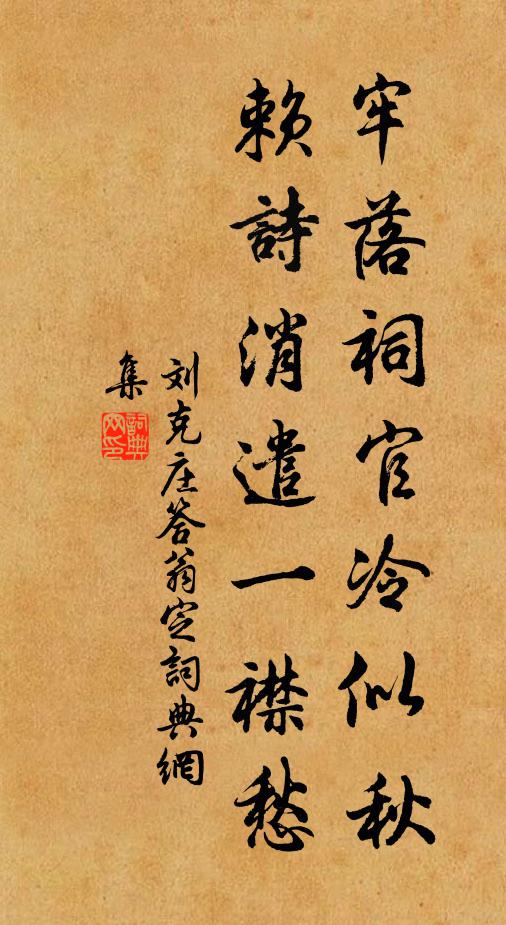 牢落祠官冷似秋
賴詩消遣一襟愁
刘克庄答翁定詞典網
集
詞典网印